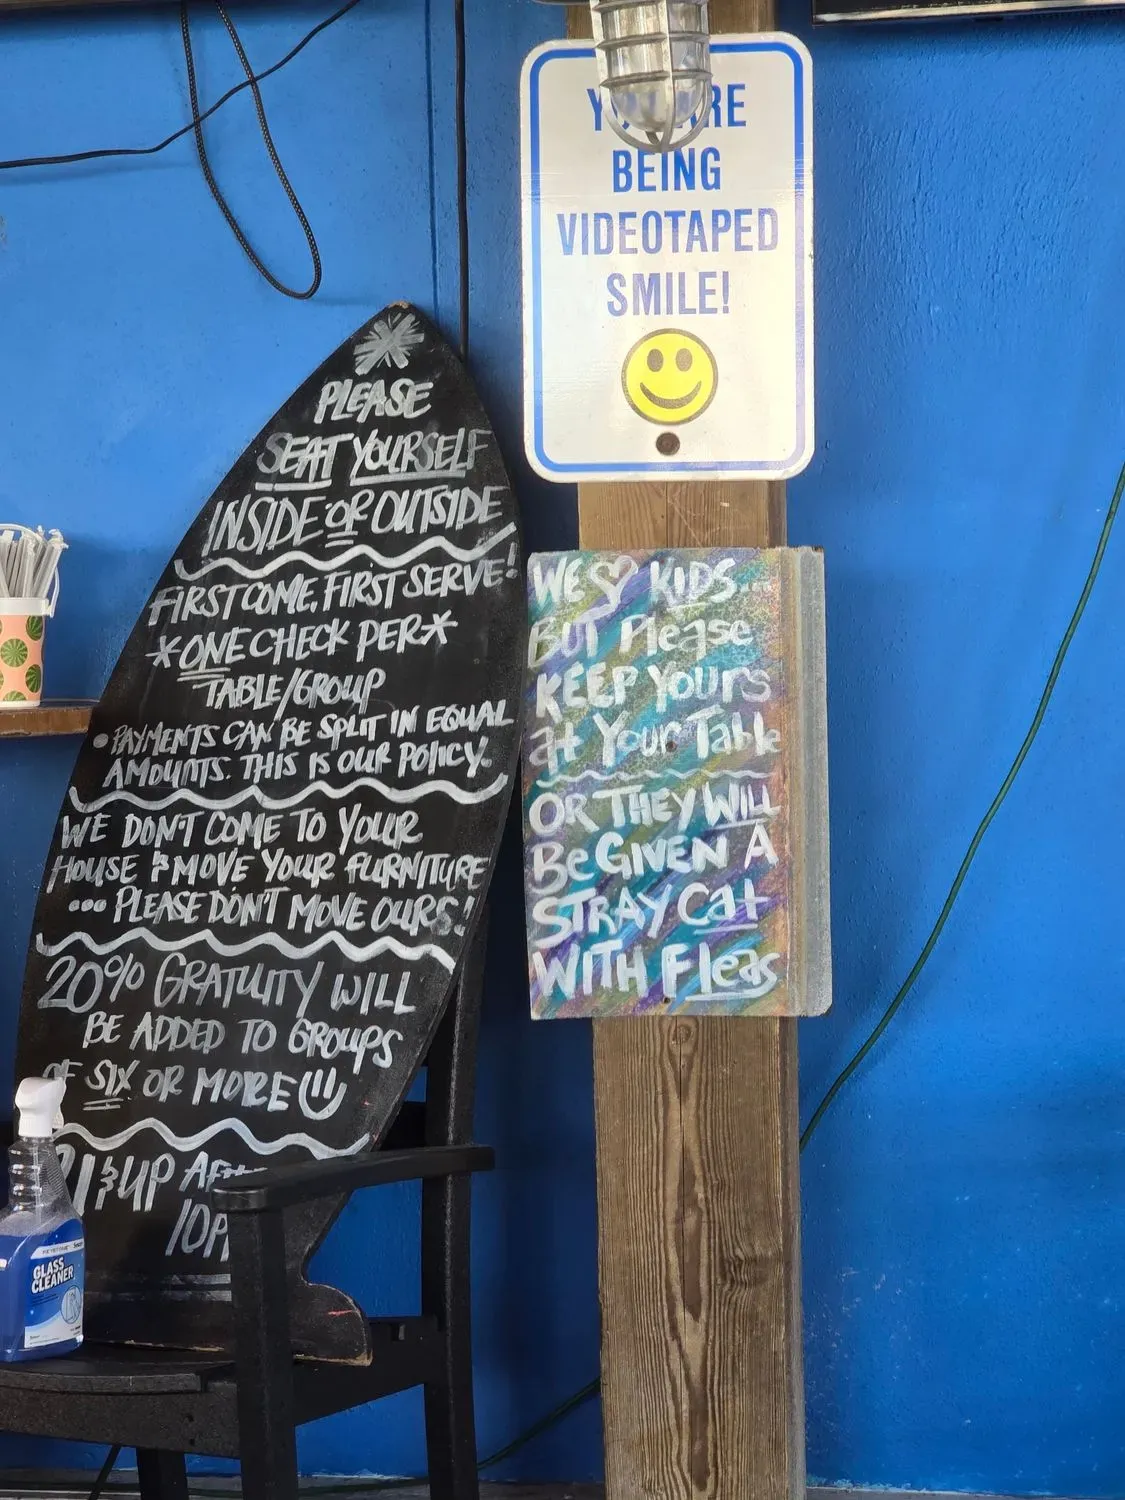 PLEASE
SEAT YOURSELF
INSIDE OR OUTSIDE
FIRST COME, FIRST SERVE!
*ONE CHECK PER*
TABLE/GROUP
• PAYMENTS CAN BE SPLIT IN EQUAL
AMOUNTS. THIS IS OUR POLICY.
WE DON'T COME TO YOUR
HOUSE & MOVE YOUR FURNITURE
... PLEASE DON'T MOVE OURS!
20% GRATUITY WILL
BE ADDED TO GROUPS
OF SIX OR MORE
& UP
10P
YOU ARE
BEING
VIDEOTAPED
SMILE!
WE ♡ KIDS...
BUT Please
KEEP YOURS
at Your Table
OR THEY WILL
Be GIVEN A
STRAY Cat
WITH Fleas
GLASS
CLEANER